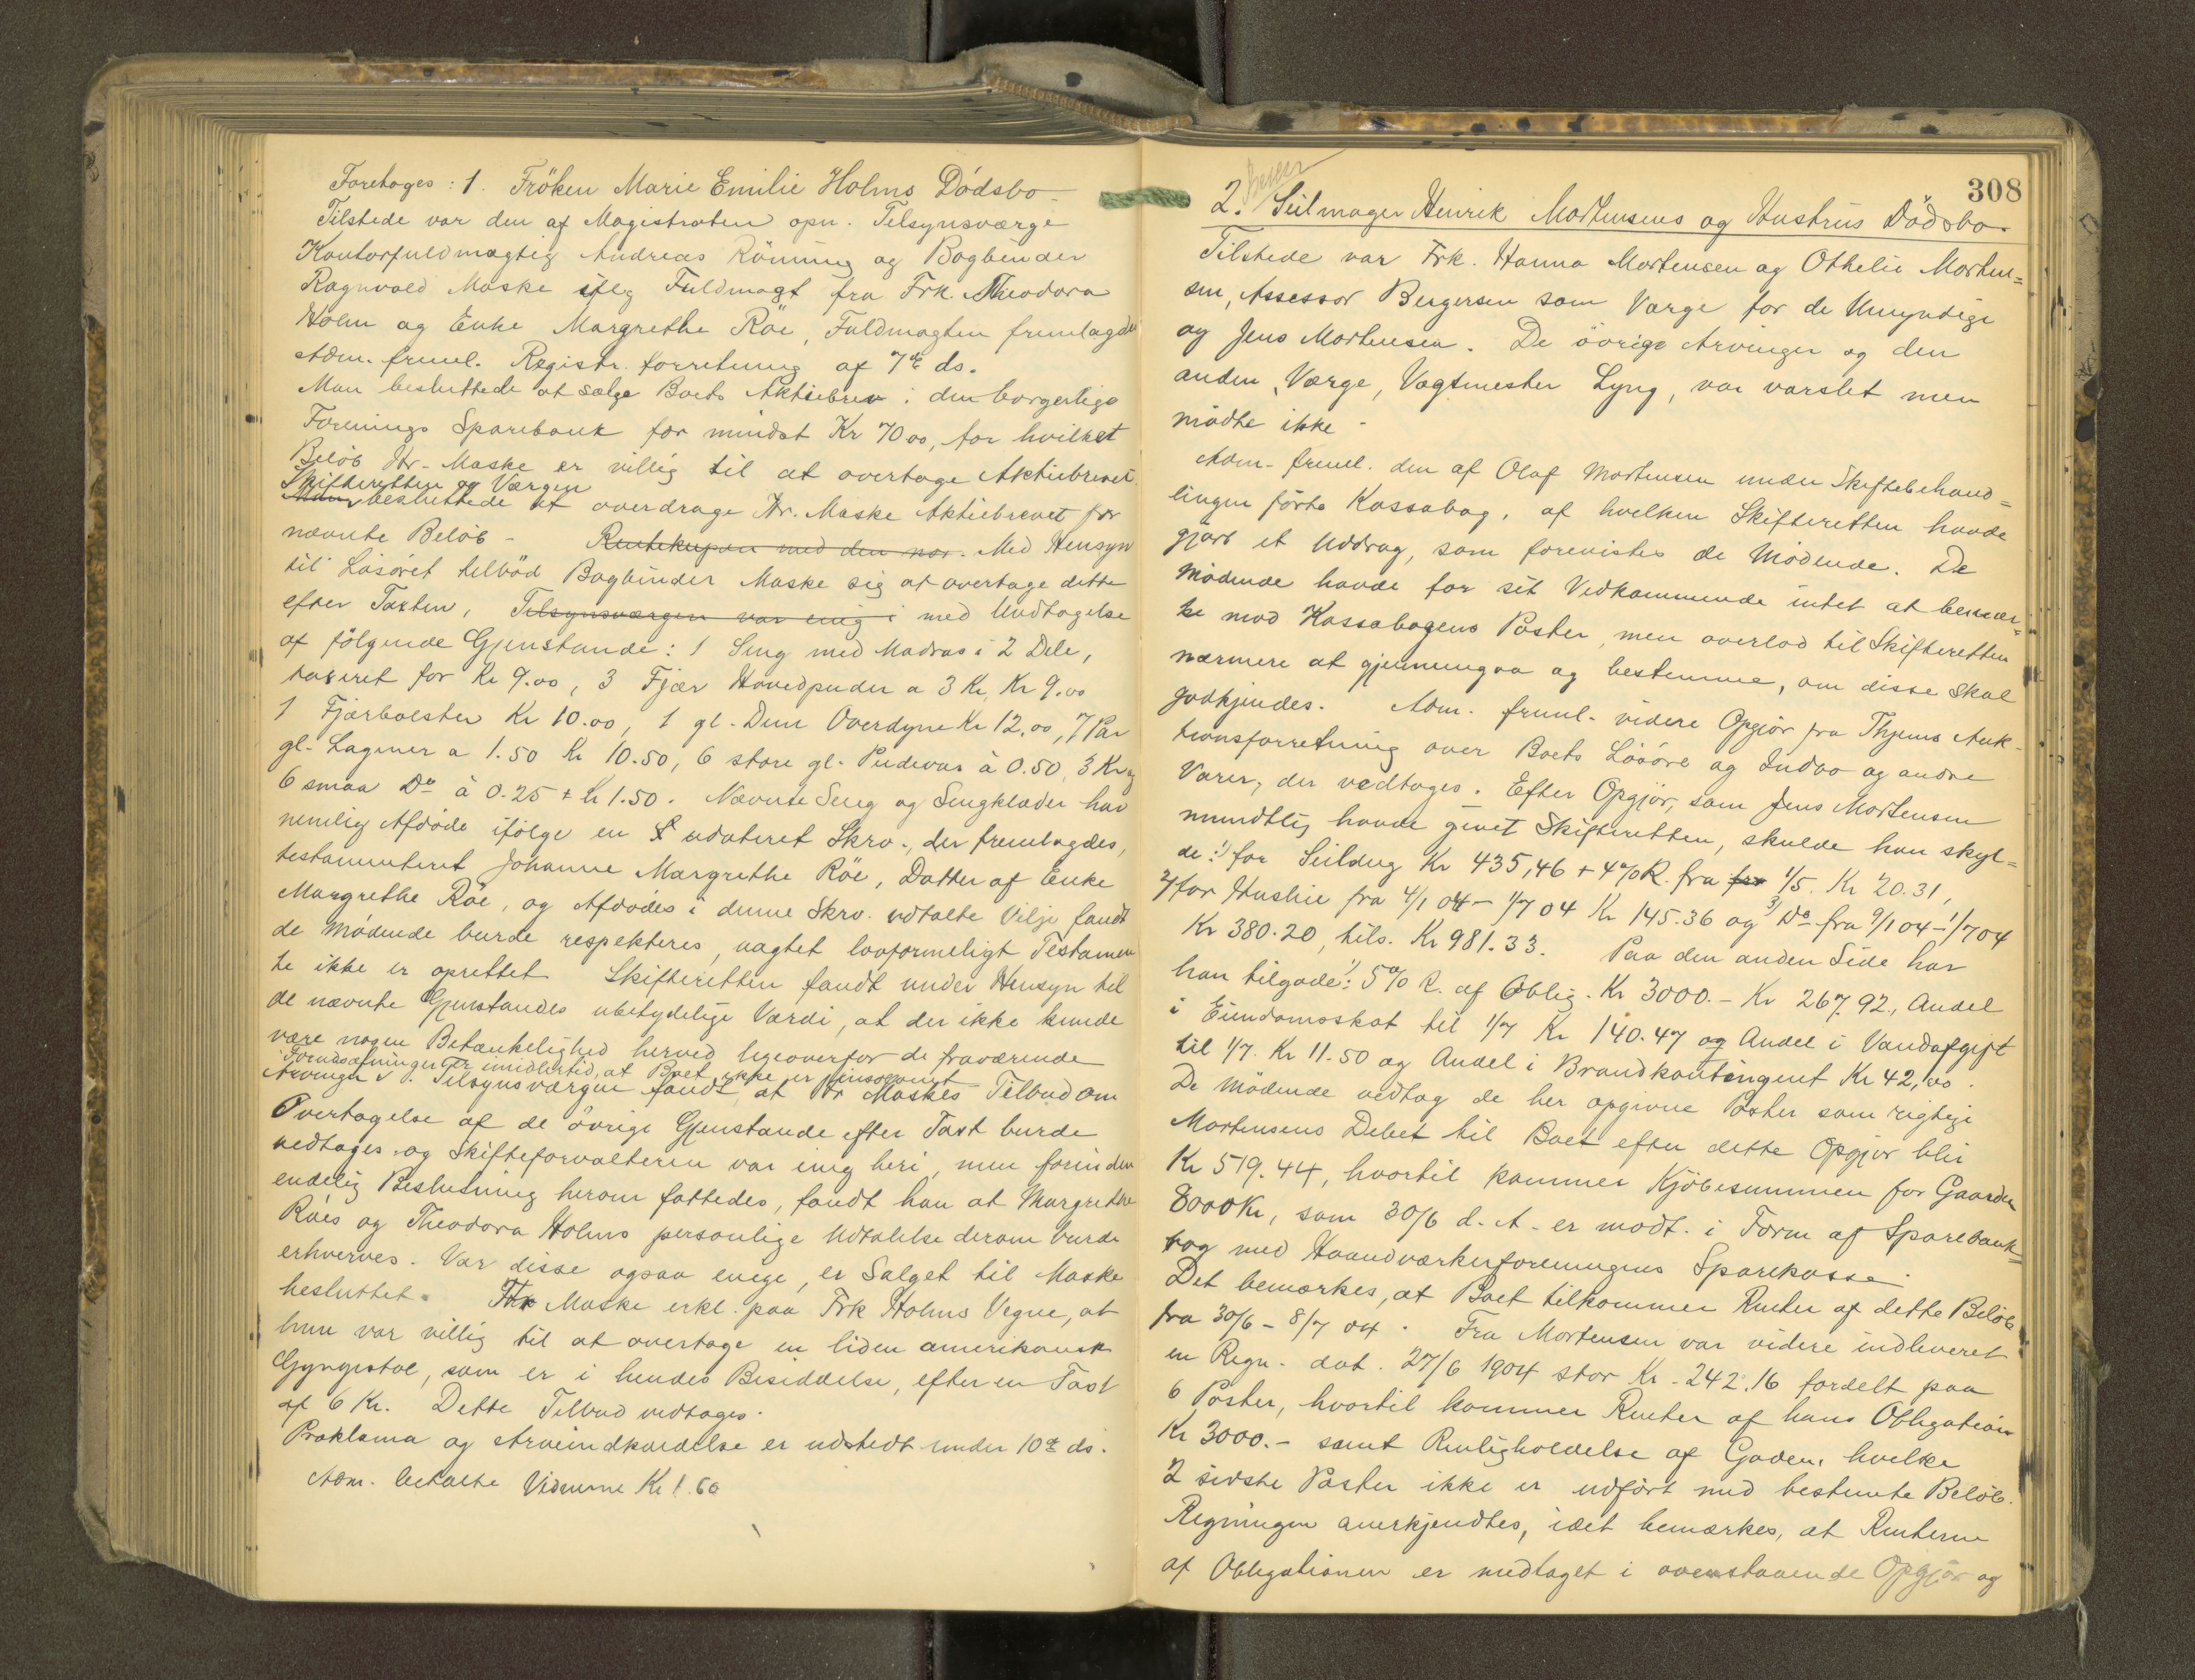 Foretoges: 1. Fröken Marie Emilie Holms Dödsbo
Tilstede var den af Magistraten opn. Tilsynsværge
Kontorfuldmægtig Andreas Rönning og Bogbinder
Ragnvald Maske iflg Fuldmagt fra Frk. Theodora
Holm og Enke Margrethe Röe, Fuldmagten fremlagdes
Adm. freml. Registr. forretning af 7de ds.
Man besluttede at sælge Boets Aktiebrev i den borgerlige
Forenings Sparebank for mindst Kr 70 00, for hvilket
Belöb Hr. Maske er villig til at overtage Aktiebrevet.
Skifteretten og Værgen
Man besluttede at overdrage Hr. Maske Aktiebrevet for
nævnte Belöb - Rentekupon med den nor. Med Hensyn
til Lösöret tilböd Bogbinder Maske sig at overtage dette
efter Taxten, Tilsynsværgen var enig i med Undtagelse
af fölgende Gjenstande: 1 Seng med Madras i 2 Dele,
taxeret for Kr 9.00, 3 Fjær Hovedpuder a 3 Kr, Kr 9.00
1 Fjærbolster Kr 10.00, 1 gl. Dun Overdyne Kr 12,00, 7 Par
gl. Lagener a 1.50 Kr 10.50, 6 store gl. Pudevar à 0.50, 3 Kr og
6 smaa Do à 0.25 + Kr 1.50. Nævnte Seng og Sengklæder har
nemlig Afdöde ifölge en udateret Skrv., der fremlagdes,
testamenteret Johanne Margrethe Röe, Datter af Enke
Margrethe Röe, og Afdödes i denne Skrv. udtalte Vilje fandt
de Mödende burde respekteres, uagtet lovformeligt Testamen
te ikke er oprettet. Skifteretten fandt under Hensyn til
de nævnte Gjenstandes ubetydelige Værdi, at der ikke kunde
være nogen Betænkelighed herved ligeoverfor de fraværende
Forudsætningen er imidlertid, at Boet ikke er insolvent
Arvinger. Tilsynsværgen fandt, at Hr Maskes Tilbud om
Overtagelse af de övrige Gjenstande efter Taxt burde
vedtages og Skifteforvalteren var enig heri, men forinden
endelig Beslutning herom fattedes, fandt han at Margrethe
Röes og Theodora Holms personlige Udtalelse derom burde
erhverves. Var disse ogsaa enige, er Salget til Maske
besluttet. Maske erkl. paa Frk Holms Vegne, at
hun var villig til at overtage en liden amerikansk
Gyngestol, som er i hendes Besiddelse, efter en Taxt
af 6 Kr. Dette Tilbud vedtoges.
Proklama og Arveindkaldelse er udstedt under 10de ds.
Adm. betalte Vidnerne Kr 1.60
308
2. Seilmager Henrik Mortensens og Hustrus Dödsbo.
Tilstede var Frk. Hanna Mortensen og Othelie Morten=
sen, Assessor Bergersen som Værge for de Umyndige
og Jens Mortensen. De övrige Arvinger og den
anden Værge, Vagtmester Lyng, var varslet men
mödte ikke.
Adm. freml. den af Olaf Mortensen under Skiftebehand=
lingen förte Kassabog, af hvilken Skifteretten havde
gjort et Uddrag, som forevistes de Mödende. De
Mödende havde for sit Vedkommende intet at bemær=
ke mod Kassabogens Poster, men overlod til Skifteretten
nærmere at gjennemgaa og bestemme, om disse skal
godkjendes. Adm. freml. videre Opgjör fra Thjems Auk-
tionsforretning over Boets Lösöre og Indbo og andre
Varer, der vedtoges. Efter Opgjör, som Jens Mortensen
mundtlig havde givet Skifteretten, skulde han skyl=
de: 1) for Seildug Kr 435,46 + 4% R. fra for 1/5. Kr 20.31,
2) for Husleie fra 4/1 04 - 1/7 04 Kr 145.36 og 3) Do fra 9/1 04 - 1/7 04
Kr 380.20, tils. Kr 981.33. Paa den anden Side har
han tilgode: 1) 5% R. af Oblig. Kr 3000.- Kr 267.92, Andel
i Eiendomsskat til 1/7 Kr 140.47 og Andel i Vandafgift
til 1/7. Kr 11.50 og Andel i Brandkontingent Kr 42,00.
De Mödende vedtog de her opgivne Poster som rigtige
Mortensens Debet til Boet efter dette Opgjör bliv
Kr 519.44, hvortil kommer Kjöbesummen for Gaarden
8000 Kr, som 30/6 d. A. er modt. i Form af Sparebank=
bog med Haandværkerforeningens Sparekasse.
Det bemærkes, at Boet tilkommer Renter af dette Belöb
fra 30/6 - 8/7 04. Fra Mortensen var videre indleveret
en Regn. dat. 27/6 1904 stor Kr. 242.16 fordelt paa
6 Poster, hvortil kommer Renter af hans Obligation
Kr 3000.- samt Renligholdelse af Gaden, hvilke
2 sidste Poster ikke er udfört med bestemte Belöb.
Regningen anerkjendtes, idet bemærkes, at Renterne
af Obligationen er medtaget i ovenstaaende Opgjör og